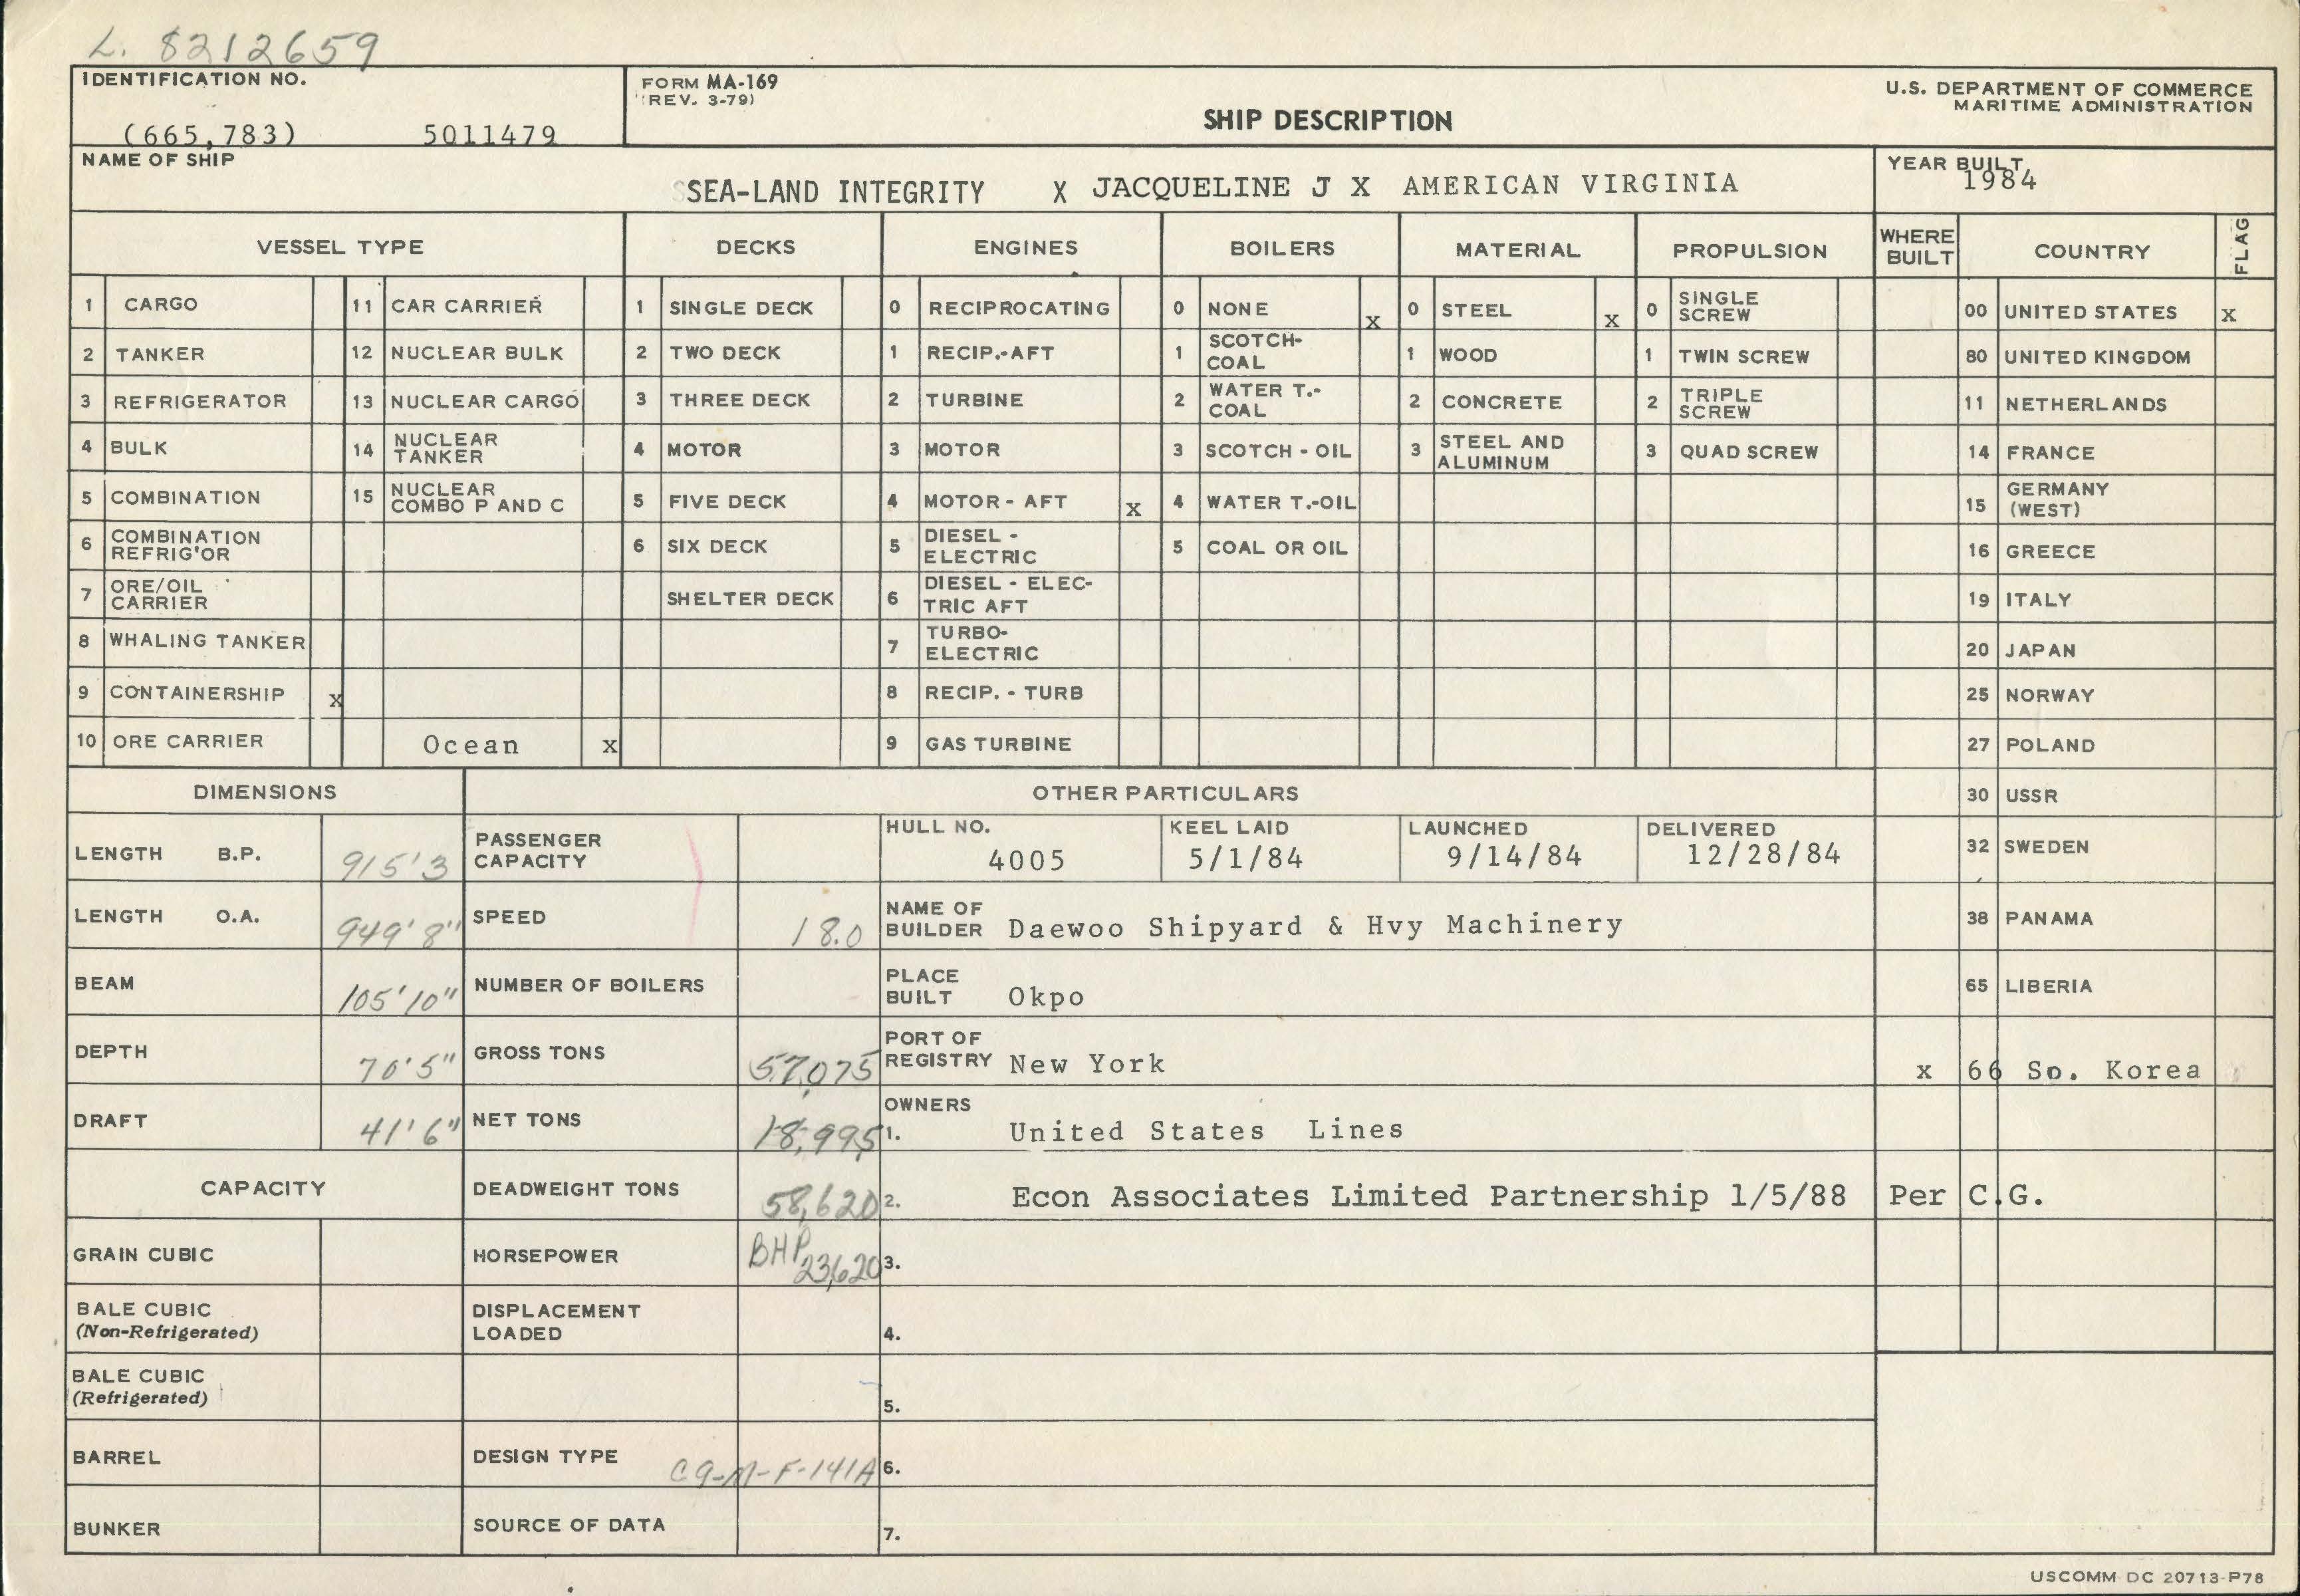 L. 8212659
IDENTIFICATION NO.
(665,783) 5011479
FORM MA-169
(REV. 3-79)
SHIP DESCRIPTION
U.S. DEPARTMENT OF COMMERCE
MARITIME ADMINISTRATION
NAME OF SHIP
SEA-LAND INTEGRITY X JACQUELINE J X AMERICAN VIRGINIA
YEAR BUILT
1984
VESSEL TYPE DECKS ENGINES BOILERS MATERIAL PROPULSION WHERE BUILT COUNTRY FLAG
1 CARGO 11 CAR CARRIER 1 SINGLE DECK 0 RECIPROCATING 0 NONE x 0 STEEL x 0 SINGLE SCREW 00 UNITED STATES x
2 TANKER 12 NUCLEAR BULK 2 TWO DECK 1 RECIP.-AFT 1 SCOTCH-COAL 1 WOOD 1 TWIN SCREW 80 UNITED KINGDOM
3 REFRIGERATOR 13 NUCLEAR CARGO 3 THREE DECK 2 TURBINE 2 WATER T.-COAL 2 CONCRETE 2 TRIPLE SCREW 11 NETHERLANDS
4 BULK 14 NUCLEAR TANKER 4 MOTOR 3 MOTOR 3 SCOTCH - OIL 3 STEEL AND ALUMINUM 3 QUAD SCREW 14 FRANCE
5 COMBINATION 15 NUCLEAR COMBO P AND C 5 FIVE DECK 4 MOTOR - AFT x 4 WATER T.-OIL 15 GERMANY (WEST)
6 COMBINATION REFRIG'OR 6 SIX DECK 5 DIESEL - ELECTRIC 5 COAL OR OIL 16 GREECE
7 ORE/OIL CARRIER SHELTER DECK 6 DIESEL - ELEC-TRIC AFT 19 ITALY
8 WHALING TANKER 7 TURBO-ELECTRIC 20 JAPAN
9 CONTAINERSHIP x 8 RECIP. - TURB 25 NORWAY
10 ORE CARRIER Ocean x 9 GAS TURBINE 27 POLAND
DIMENSIONS OTHER PARTICULARS 30 USSR
LENGTH B.P. 915'3 PASSENGER CAPACITY HULL NO. 4005 KEEL LAID 5/1/84 LAUNCHED 9/14/84 DELIVERED 12/28/84 32 SWEDEN
LENGTH O.A. 949'8" SPEED 18.0 NAME OF BUILDER Daewoo Shipyard & Hvy Machinery 38 PANAMA
BEAM 105'10" NUMBER OF BOILERS PLACE BUILT Okpo 65 LIBERIA
DEPTH 70'5" GROSS TONS 57,075 PORT OF REGISTRY New York x 66 So. Korea
DRAFT 41'6" NET TONS 18,995 OWNERS 1. United States Lines
CAPACITY DEADWEIGHT TONS 58,620 2. Econ Associates Limited Partnership 1/5/88 Per C.G.
GRAIN CUBIC HORSEPOWER BHP 23,620 3.
BALE CUBIC (Non-Refrigerated) DISPLACEMENT LOADED 4.
BALE CUBIC (Refrigerated) 5.
BARREL DESIGN TYPE C9-M-F-141A 6.
BUNKER SOURCE OF DATA 7.
USCOMM-DC 20713-P78